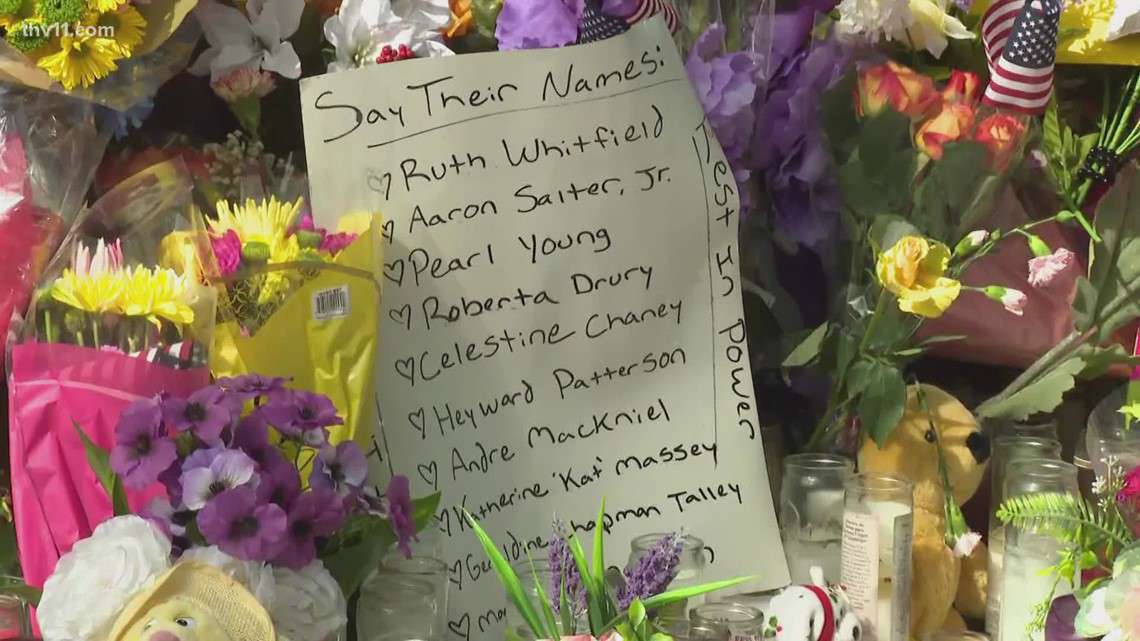 thv11.com
Say Their Names:
Ruth Whitfield
Aaron Salter, Jr.
Pearl Young
Roberta Drury
Celestine Chaney
Heyward Patterson
Andre Mackniel
Katherine 'Kat' Massey
Chapman Talley
Rest In Power